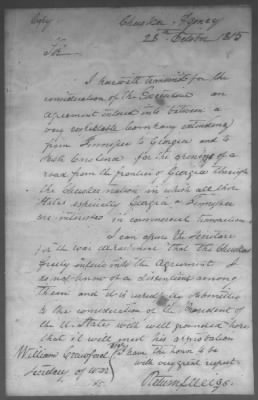 Copy
Cherokee Agency
28th October 1815
Sir
I herewith transmit for the
consideration of the Executive an
agreement entered into between a
very respectable Company extending
from Tennessee to Georgia and to
for the opening of a
road from the frontiers of Georgia through
the Cherokee nation in which all these
States especially Georgia & Tennessee
are interested in commercial transactions
I can assure the Secretary
for the war department that the Cherokees
freely entered into the Agreement I
do not know of a dissentient among
them and it is submitted
to the consideration of the President of
the U. States with well grounded hope
that it will meet his approbation
William Crawford
I have the honor to be
Secretary of War
with very great respect
Return J. Meigs.